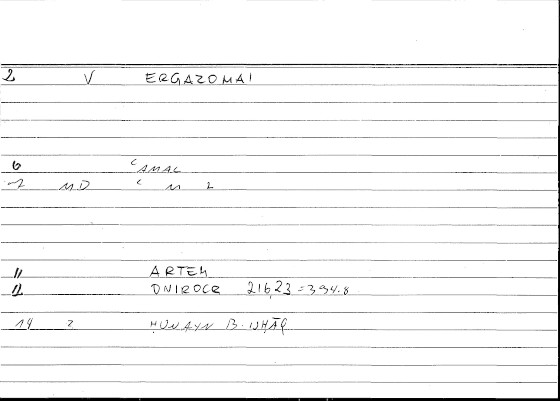 2 V ERGAZOMAI
6 ʿAMAL
-2 MD ʿ M L
11 ARTEM
12 ONIROCR 216,23 = 394.8
14 2 ḤUNAYN B. ISḤĀQ